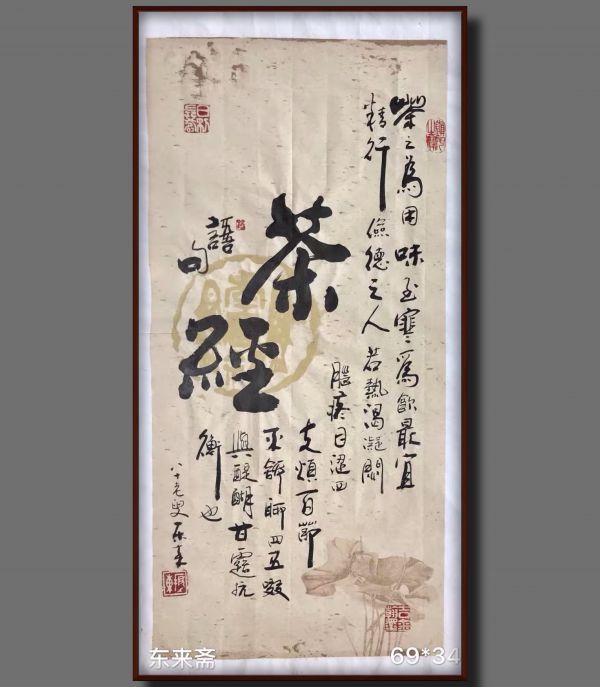 茶之為用味至寒為飲最宜
精行儉德之人若熱渴凝悶
腦疼目澀四
支煩百節
不舒聊四五啜
與醍醐甘露抗
衡也
茶經
語句
八十老叟
东来斋
69*34